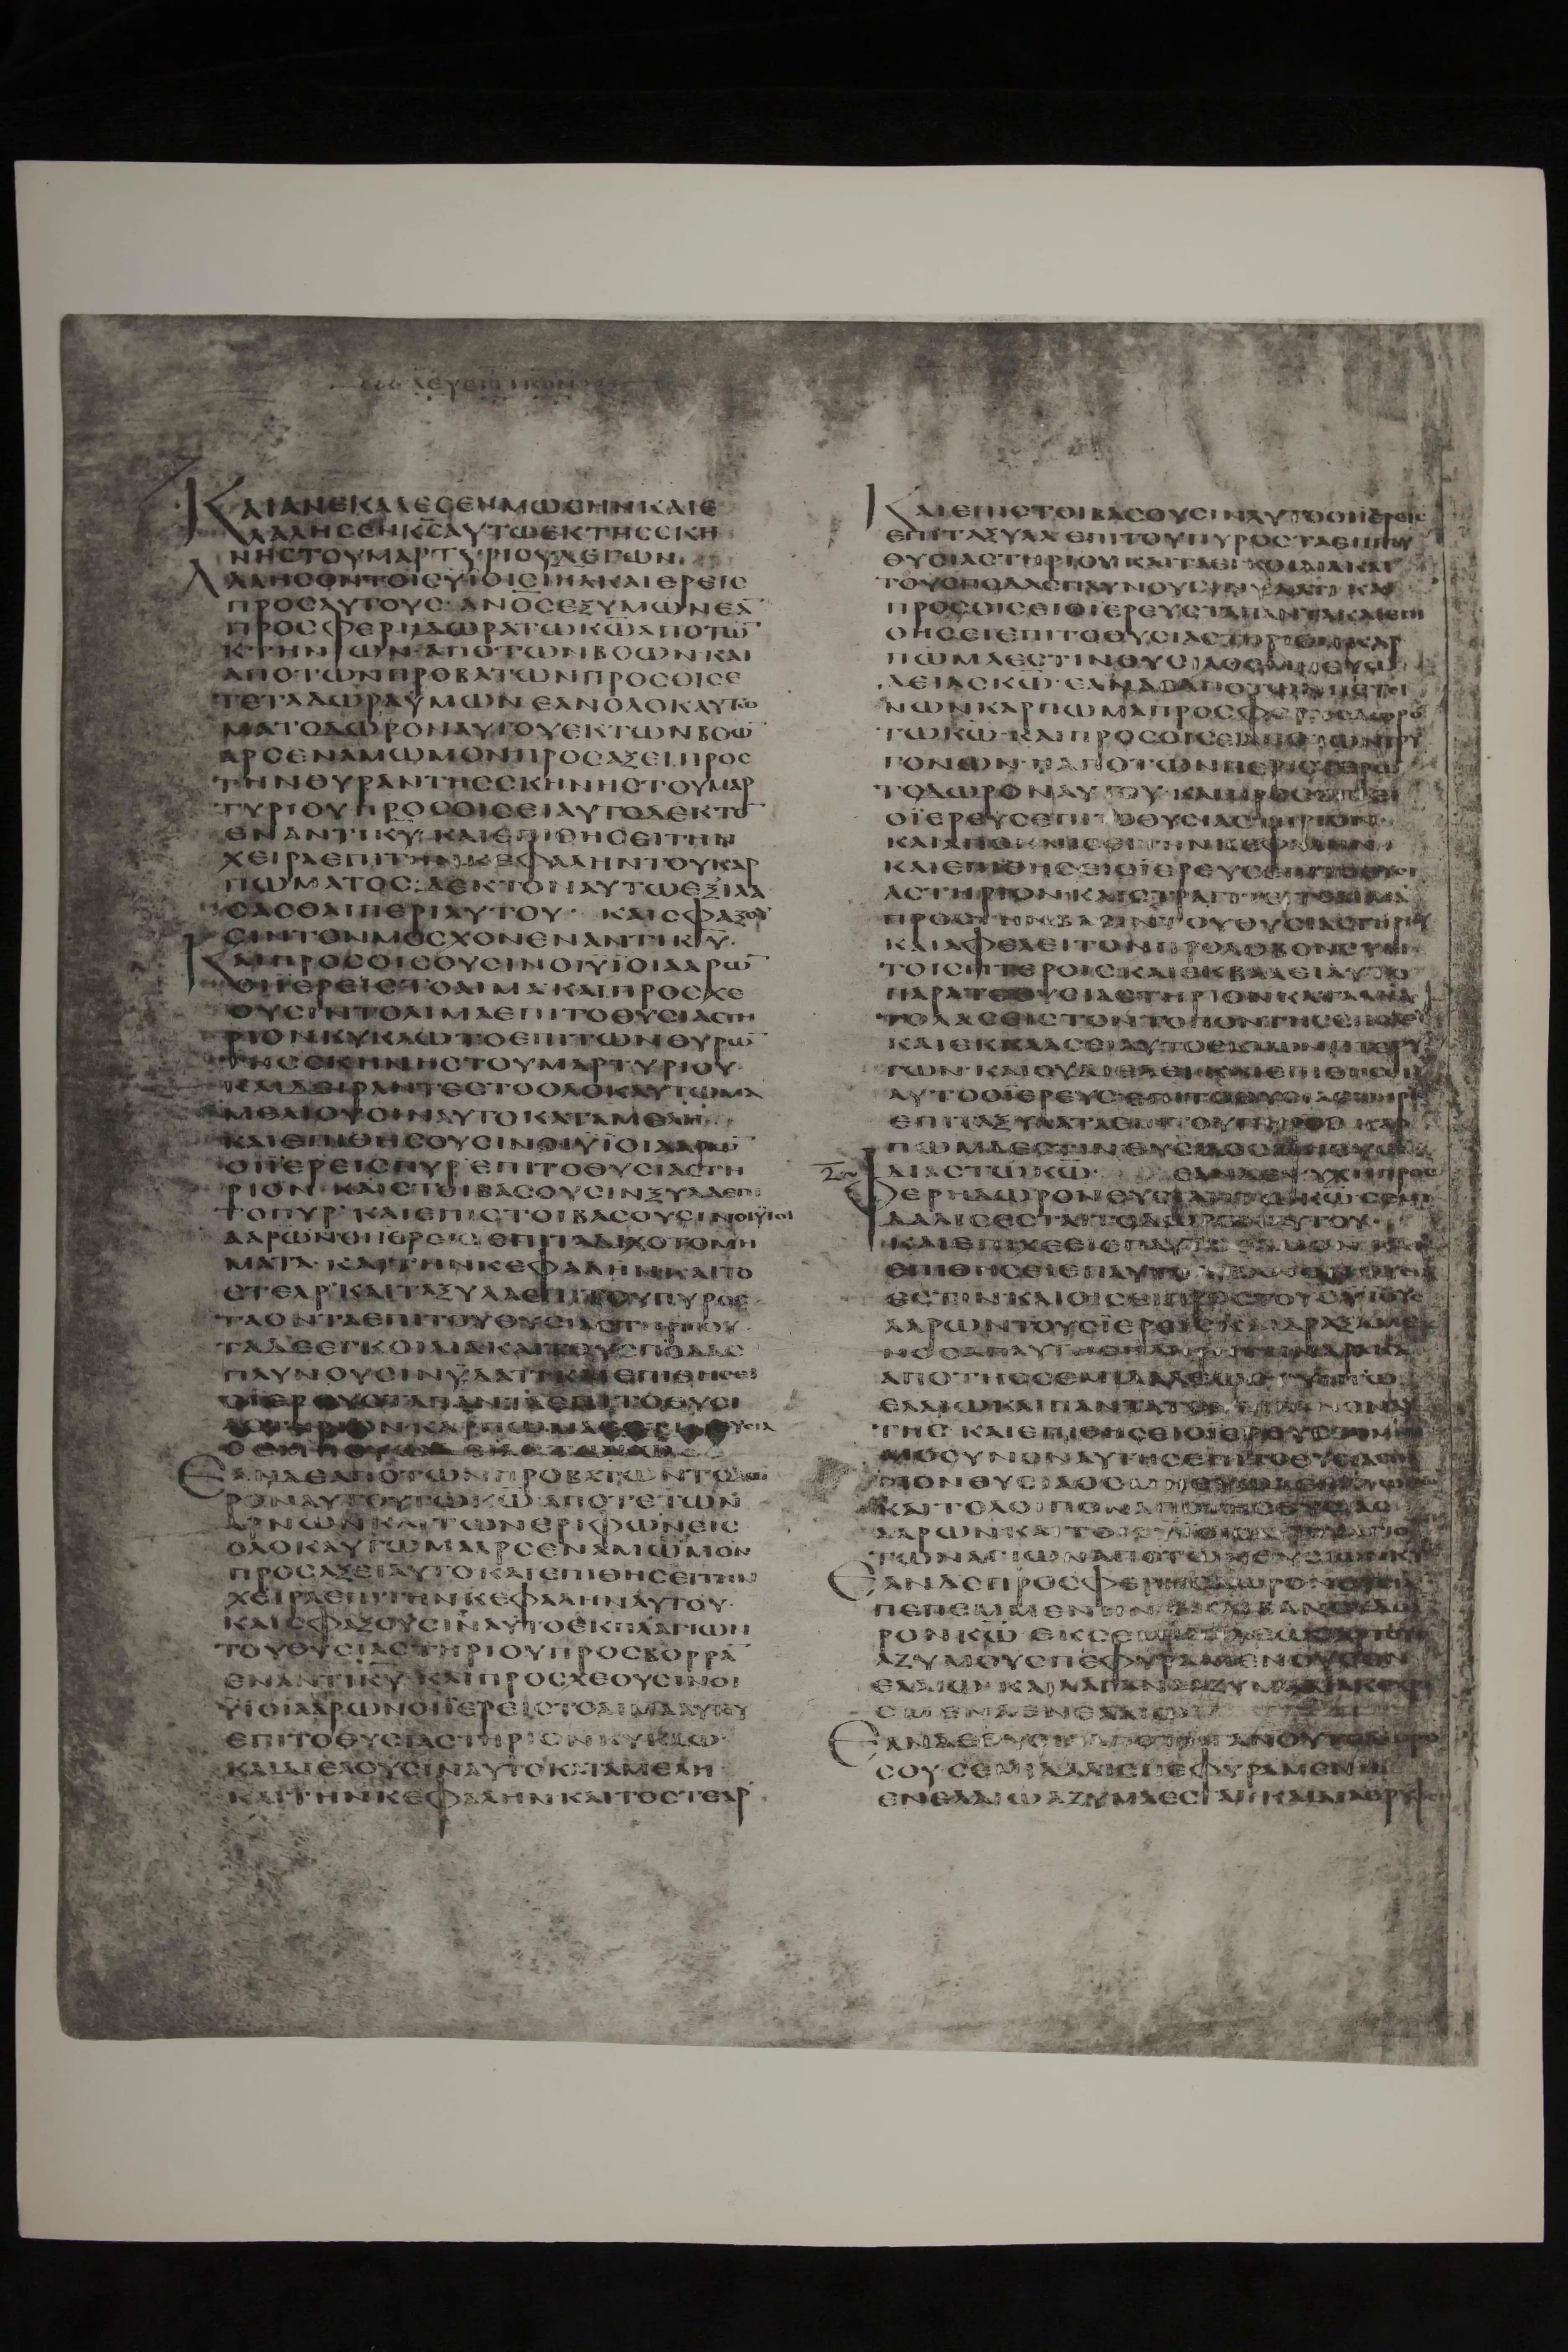 ΛΕΥΕΙΤΙΚΟΝ
ΚΑΙΑΝΕΚΑΛΕCΕΝΜΩCΗΝΚΑΙΕ
ΛΑΛΗCΕΝΚ̅C̅ΑΥΤΩΕΚΤΗCCΚΗ
ΝΗCΤΟΥΜΑΡΤΥΡΙΟΥΛΕΓΩΝ
ΛΑΛΗCΟΝΤΟΙCΫΙΟΙCΙΗΛΚΑΙΕΡΕΙC
ΠΡΟCΑΥΤΟΥC ΑΝΟ̅CΕΞΥΜΩΝΕΑ̅
ΠΡΟCΦΕΡΗΔΩΡΑΤΩΚ̅Ω̅ΑΠΟΤΩ̅
ΚΤΗΝΩΝ ΑΠΟΤΩΝΒΟΩΝΚΑΙ
ΑΠΟΤΩΝΠΡΟΒΑΤΩΝΠΡΟCΟΙCΕ
ΤΕΤΑΔΩΡΑΫΜΩΝΕΑΝΟΛΟΚΑΥΤΩ
ΜΑΤΟΔΩΡΟΝΑΥΤΟΥΕΚΤΩΝΒΟΩ̅
ΑΡCΕΝΑΜΩΜΟΝΠΡΟCΑΞΕΙΠΡΟC
ΤΗΝΘΥΡΑΝΤΗCCΚΗΝΗCΤΟΥΜΑΡ
ΤΥΡΙΟΥΠΡΟCΟΙCΕΙΑΥΤΟΔΕΚΤΟ̅
ΕΝΑΝΤΙΚ̅Υ̅ ΚΑΙΕΠΙΘΗCΕΙΤΗΝ
ΧΕΙΡΑΕΠΙΤΗΝΚΕΦΑΛΗΝΤΟΥΚΑΡ
ΠΩΜΑΤΟC ΔΕΚΤΟΝΑΥΤΩΕΞΙΛΑ
CΑCΘΑΙΠΕΡΙΑΥΤΟΥ· ΚΑΙCΦΑΞΟΥ
CΙΝΤΟΝΜΟCΧΟΝΕΝΑΝΤΙΚ̅Υ̅·
ΚΑΙΠΡΟCΟΙCΟΥCΙΝΟΙΫΙΟΙΑΑΡΩ̅
ΟΙΪΕΡΕΙCΤΟΑΙΜΑ ΚΑΙΠΡΟCΧΕ
ΟΥCΙΝΤΟΑΙΜΑΕΠΙΤΟΘΥCΙΑCΤΗ
ΡΙΟΝΚΥΚΛΩΤΟΕΠΙΤΩΝΘΥΡΩ̅
ΤΗCCΚΗΝΗCΤΟΥΜΑΡΤΥΡΙΟΥ·
ΚΑΙΔΕΙΡΑΝΤΕCΤΟΟΛΟΚΑΥΤΩΜΑ
ΜΕΛΙΟΥCΙΝΑΥΤΟΚΑΤΑΜΕΛΗ
ΚΑΙΕΠΙΘΗCΟΥCΙΝΟΙΫΙΟΙΑΑΡΩ̅
ΟΙΪΕΡΕΙCΠΥΡΕΠΙΤΟΘΥCΙΑCΤΗ
ΡΙΟΝ ΚΑΙCΤΟΙΒΑCΟΥCΙΝΞΥΛΑΕΠΙ
ΤΟΠΥΡ ΚΑΙΕΠΙCΤΟΙΒΑCΟΥCΙΝΟΙΫΙΟΙ
ΑΑΡΩΝΟΙΪΕΡΕΙCΕΠΙΤΑΔΙΧΟΤΟΜΗ
ΜΑΤΑ ΚΑΙΤΗΝΚΕΦΑΛΗΝΚΑΙΤΟ
CΤΕΑΡ ΚΑΙΤΑΞΥΛΑΕΠΙΤΟΥΠΥΡΟC
ΤΑΟΝΤΑΕΠΙΤΟΥΘΥCΙΑCΤΗΡΙΟΥ
ΤΑΔΕΕΓΚΟΙΛΙΑΚΑΙΤΟΥCΠΟΔΑC
ΠΛΥΝΟΥCΙΝΫΔΑΤΙΚΑΙΕΠΙΘΗCΕΙ
ΟΪΕΡΕΥCΤΑΠΑΝΤΑΕΠΙΤΟΘΥCΙ
ΑCΤΗΡΙΟΝΚΑΡΠΩΜΑΕCΤΙΘΥCΙΑ
ΕΑΝΔΕΑΠΟΤΩΝΠΡΟΒΑΤΩΝΤΟΔΩ
ΡΟΝΑΥΤΟΥΤΩΚ̅Ω̅ΑΠΟΤΕΤΩΝ
ΑΡΝΩΝΚΑΙΤΩΝΕΡΙΦΩΝΕΙC
ΟΛΟΚΑΥΤΩΜΑΑΡCΕΝΑΜΩΜΟΝ
ΠΡΟCΑΞΕΙΑΥΤΟΚΑΙΕΠΙΘΗCΕΙΤΗΝ
ΧΕΙΡΑΕΠΙΤΗΝΚΕΦΑΛΗΝΑΥΤΟΥ·
ΚΑΙCΦΑΞΟΥCΙΝΑΥΤΟΕΚΠΛΑΓΙΩΝ
ΤΟΥΘΥCΙΑCΤΗΡΙΟΥΠΡΟCΒΟΡΡΑ̅
ΕΝΑΝΤΙΚ̅Υ̅ ΚΑΙΠΡΟCΧΕΟΥCΙΝΟΙ
ΫΙΟΙΑΑΡΩΝΟΙΪΕΡΕΙCΤΟΑΙΜΑΑΥΤΟΥ
ΕΠΙΤΟΘΥCΙΑCΤΗΡΙΟΝΚΥΚΛΩ·
ΚΑΙΔΙΕΛΟΥCΙΝΑΥΤΟΚΑΤΑΜΕΛΗ
ΚΑΙΤΗΝΚΕΦΑΛΗΝΚΑΙΤΟCΤΕΑΡ
ΚΑΙΕΠΙCΤΟΙΒΑCΟΥCΙΝΑΥΤΟΟΙΪΕΡΕΙC
ΕΠΙΤΑΞΥΛΑΕΠΙΤΟΥΠΥΡΟCΤΑΕΠΙΤΟΥ
ΘΥCΙΑCΤΗΡΙΟΥ ΚΑΙΤΑΕΓΚΟΙΛΙΑΚΑΙ
ΤΟΥCΠΟΔΑCΠΛΥΝΟΥCΙΝΫΔΑΤΙ ΚΑΙ
ΠΡΟCΟΙCΕΙΟΪΕΡΕΥCΤΑΠΑΝΤΑΚΑΙΕΠΙ
ΘΗCΕΙΕΠΙΤΟΘΥCΙΑCΤΗΡΙΟΝΚΑΡ
ΠΩΜΑΕCΤΙΝΘΥCΙΑΟCΜΗΕΥΩ
ΔΕΙΑCΚ̅Ω̅· ΕΑΝΔΕΑΠΟΤΩΝΠΕΤΙ
ΝΩΝΚΑΡΠΩΜΑΠΡΟCΦΕΡΗCΔΩΡΟ̅
ΤΩΚ̅Ω̅ ΚΑΙΠΡΟCΟΙCΕΙΑΠΟΤΩΝΤΡΥ
ΓΟΝΩΝ ΗΑΠΟΤΩΝΠΕΡΙCΤΕΡΩ̅
ΤΟΔΩΡΟΝΑΥΤΟΥ ΚΑΙΠΡΟCΟΙCΕΙ
ΟΪΕΡΕΥCΕΠΙΤΟΘΥCΙΑCΤΗΡΙΟΝ
ΚΑΙΑΠΟΚΝΙCΕΙΤΗΝΚΕΦΑΛΗΝ
ΚΑΙΕΠΙΘΗCΕΙΟΪΕΡΕΥCΕΠΙΤΟΘΥCΙ
ΑCΤΗΡΙΟΝ ΚΑΙCΤΡΑΓΓΙΕΙΤΟΑΙΜΑ
ΠΡΟCΤΗΝΒΑCΙΝΤΟΥΘΥCΙΑCΤΗΡΙΟΥ
ΚΑΙΑΦΕΛΕΙΤΟΝΠΡΟΛΟΒΟΝCΥΝ
ΤΟΙCΠΤΕΡΟΙCΚΑΙΕΚΒΑΛΕΙΑΥΤΟ
ΠΑΡΑΤΟΘΥCΙΑCΤΗΡΙΟΝΚΑΤΑΑΝΑ
ΤΟΛΑCΕΙCΤΟΝΤΟΠΟΝΤΗCCΠΟΔΟΥ
ΚΑΙΕΚΚΛΑCΕΙΑΥΤΟΕΚΤΩΝΠΤΕΡΥ
ΓΩΝ ΚΑΙΟΥΔΙΕΛΕΙ ΚΑΙΕΠΙΘΗCΕΙ
ΑΥΤΟΟΪΕΡΕΥCΕΠΙΤΟΘΥCΙΑCΤΗΡΙ
ΕΠΙΤΑΞΥΛΑΤΑΕΠΙΤΟΥΠΥΡΟC ΚΑΡ
ΠΩΜΑΕCΤΙΝΘΥCΙΑΟCΜΗΕΥΩ
ΔΙΑCΤΩΚ̅Ω̅· ΕΑΝΔΕΨΥΧΗΠΡΟC
ΦΕΡΗΔΩΡΟΝΘΥCΙΑΝΤΩΚ̅Ω̅ CΕΜΙ
ΔΑΛΙCΕCΤΑΙΤΟΔΩΡΟΝΑΥΤΟΥ
ΚΑΙΕΠΙΧΕΕΙΕΠΑΥΤΟΕΛΑΙΟΝ ΚΑΙ
ΕΠΙΘΗCΕΙΕΠΑΥΤΟΛΙΒΑΝΟΝ
ΕCΤΙΝΚΑΙΟΙCΕΙΠΡΟCΤΟΥCΫΙΟΥC
ΑΑΡΩΝΤΟΥCΪΕΡΕΙC ΚΑΙΔΡΑΞΑΜΕ
ΑΠΟΤΗCCΕΜΙΔΑΛΕΩC CΥΝΤΩ
ΕΛΑΙΩΚΑΙΠΑΝΤΑΤΟΝΛΙΒΑΝΟΝΑΥ
ΤΗC ΚΑΙΕΠΙΘΗCΕΙΟΪΕΡΕΥCΤΟΜΝΗ
ΜΟCΥΝΟΝΑΥΤΗCΕΠΙΤΟΘΥCΙΑCΤΗ
ΡΙΟΝΘΥCΙΑΟCΜΗΕΥΩΔΙΑCΤΩΚ̅Ω̅
ΚΑΙΤΟΛΟΙΠΟΝΑΠΟΤΗCΘΥCΙΑC
ΑΑΡΩΝΚΑΙΤΟΙCΫΙΟΙCΑΥΤΟΥΑΓΙΟ̅
ΤΩΝΑΓΙΩΝΑΠΟΤΩΝΘΥCΙΩΝΚ̅Υ̅
ΕΑΝΔΕΠΡΟCΦΕΡΗCΔΩΡΟΝΘΥCΙΑ̅
ΠΕΠΕΜΜΕΝΗΝΕΝΚΛΙΒΑΝΩΔΩ
ΡΟΝΚ̅Ω̅ ΕΚCΕΜΙΔΑΛΕΩCΑΡΤΟΥC
ΑΖΥΜΟΥCΠΕΦΥΡΑΜΕΝΟΥCΕΝ
ΕΛΑΙΩ ΚΑΙΛΑΓΑΝΑΑΖΥΜΑΔΙΑΚΕΧΡΙ
CΜΕΝΑΕΝΕΛΑΙΩ
ΕΑΝΔΕΘΥCΙΑΑΠΟΤΗΓΑΝΟΥΤΟΔΩΡΟ̅
CΟΥCΕΜΙΔΑΛΙCΠΕΦΥΡΑΜΕΝΗ
ΕΝΕΛΑΙΩΑΖΥΜΑΕCΤΑΙ ΚΑΙΔΙΑΘΡΥ